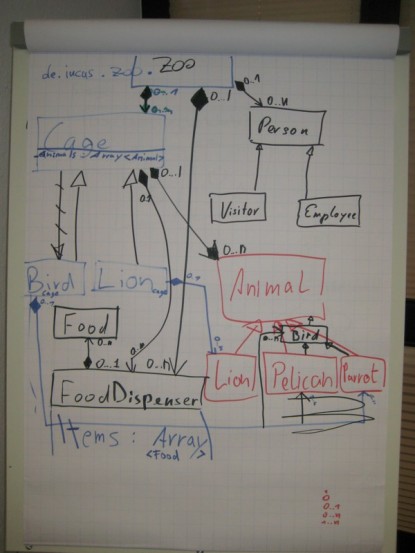 de.incus.zoo.Zoo
0..1
0..1
0..n
0..1
0..n
Cage
Person
Animals: Array<Animal>
0..1
0..1
Visitor
Employee
0..n
Bird
Cage
Lion
Cage
Animal
Food
Bird
0..n
0..1
0..n
Lion
Pelican
Parrot
FoodDispenser
Items: Array
<Food>
0
0..1
0..n